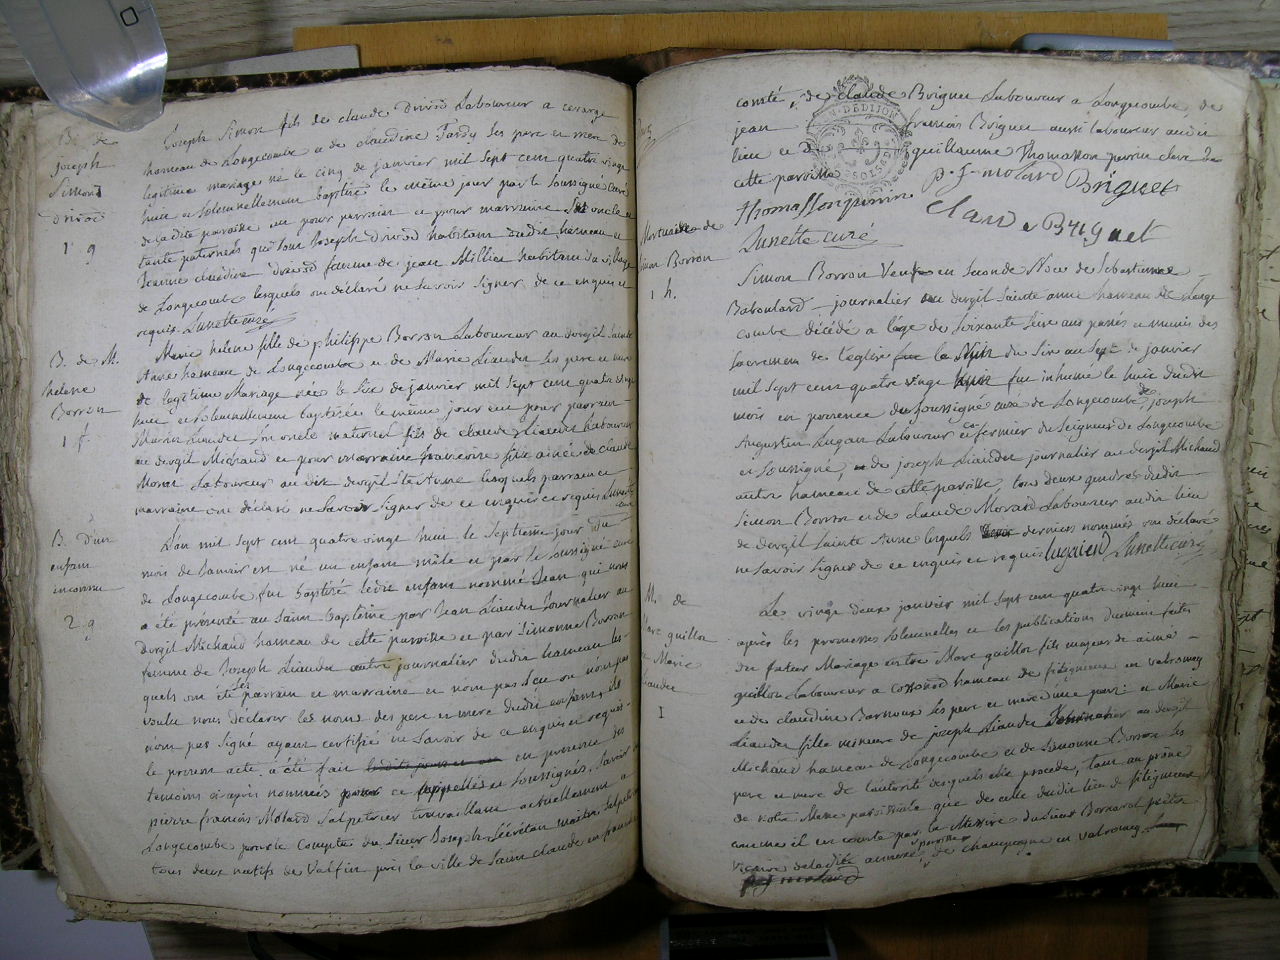 B. de
Joseph
Simond
Drivod
1 g
Joseph Simon fils de claude Drivod Laboureur a
hameau de Longecombe et de claudine Tardy ses pere et mere de
legitime mariage né le cinq de janvier mil sept cent quatre vingt
huit et solemnellement baptisé le même jour par le soussigné curé
de ladite paroisse eu pour parrain et pour marraine Son oncle et
tante paternels Joseph Drivod habitant dudit hameau et
Jeanne claudine Drivod femme de jean Millier habitant du village
de Longecombe lesquels ont déclaré ne savoir signer de ce enquis et
requis. Lunette curé
B. de M.
helene
Borron
1 f.
Marie helene fille de philippe Borron Laboureur au dergil Sainte
Anne hameau de Longecombe et de Marie Liauder ses pere et mere
de legitime Mariage née le Six de janvier mil sept cent quatre vingt
huit et solemnellement baptisée le même jour eu pour parrain
Marin Liauder Son oncle maternel fils de claude Liauder Laboureur
au dergil Michaud et pour marraine francoise fille ainée de claude
Morar Laboureur au dit dergil Ste Anne lesquels parrain et
marraine ont déclaré ne Savoir Signer de ce enquis et requis Lunette
curé
B. d'un
enfant
inconnu
2 g
L'an mil sept cent quatre vingt huit le septieme jour du
mois de Janvier est né un enfant mâle et par le soussigné curé
de Longecombe fut baptisé ledit enfant nommé Jean qui nous
a été présenté au Saint Baptême par Jean Liauder Journalier au
dergil Michaud hameau de cette paroisse et par Simonne Borron
femme de Joseph Liauder autre journalier dudit hameau les-
quels ont été Ses parrain et marraine et n'ont pas Scu ou n'ont pas
voulu nous déclarer les noms des pere et mere dudit enfant, et
n'ont pas signé ayant certifié ne Savoir de ce enquis et requis-
le present acte a été fait en présence des
temoins ci apres nommés et appellés et Soussignés, Savoir
pierre françois Molard Salpetrier travaillant actuellement a
Longecombe pour le Compte du Sieur Joseph Sécrétan maitre Salpetrier
tous deux natifs de Valfin près la ville de Saint Claude en franche
comté, de claude Briguet Laboureur a Longecombe, de
jean françois Briguet aussi laboureur audit
lieu et de guillaume Thomasson perrin clerc de
cette paroisse
p. f. molard Briguet
Thomasson perrin claude Briguet
Lunette curé
Mortuaire de
Simon Borron
1 h.
Simon Borron Veuf en seconde Noce de Sebastienne
Baboulard journalier au dergil Sainte anne hameau de Longe
combe décédé a l'âge de Soixante Seize ans passés et munis des
Sacremens de l'eglise la Nuit du Six au Sept de janvier
mil sept cent quatre vingt huit fut inhumé le huit dudit
mois en présence du soussigné curé de Longecombe, de joseph
Augustin Lugan Laboureur et co-fermier du Seigneur de Longecombe
et soussigné, et de joseph Liauder journalier au dergil Michaud
autre hameau de cette paroisse, tous deux gendres dudit
Simon Borron et de claude Morard Laboureur audit lieu
de dergil Sainte Anne lesquels derniers nommés ont déclaré
ne Savoir Signer de ce enquis et requis Lunette curé
M. de
Marc guillon
et Marie
Liauder
I
Le vingt deux janvier mil Sept cent quatre vingt huit
après les promesses solemnelles et les publications duement faites
du futur Mariage entre Marc guillon fils majeur de aimé
guillon Laboureur a hameau de fitignieux en valromey
et de claudine Barnoux ses pere et mere d'une part et Marie
Liauder fille mineure de joseph Liauder Journalier au dergil
Michaud hameau de Longecombe et de Simonne Borron Ses
pere et mere de l'autorité desquels elle procede, tant au prône
de notre Messe paroissiale que de celle dudit lieu de fitignieux
comme il en conste par la du Sieur prêtre
vicaire de ladite annexe, paroisse de champagne en valromey